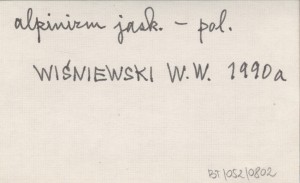 alpinizm jask. – pol.
WIŚNIEWSKI W.W. 1990a
BT/052/0802